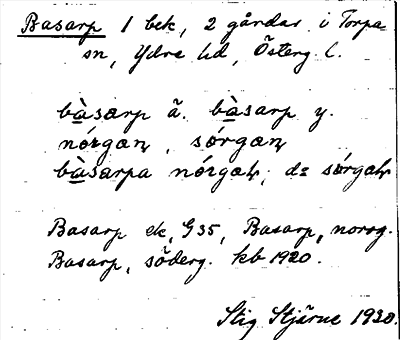 Basarp 1 bek, 2 gårdar i Torpa
sn, Ydre hd, Österg l.
bàsærp ä. bàsarp y.
nórgaɳ, sórgaɳ
bàsarpa nórgaɳ, ds sórgaɳ
Basarp ek, G35, Basarp, norrg.
Basarp, söderg. kb 1920.
Stig Stjärne 1930.